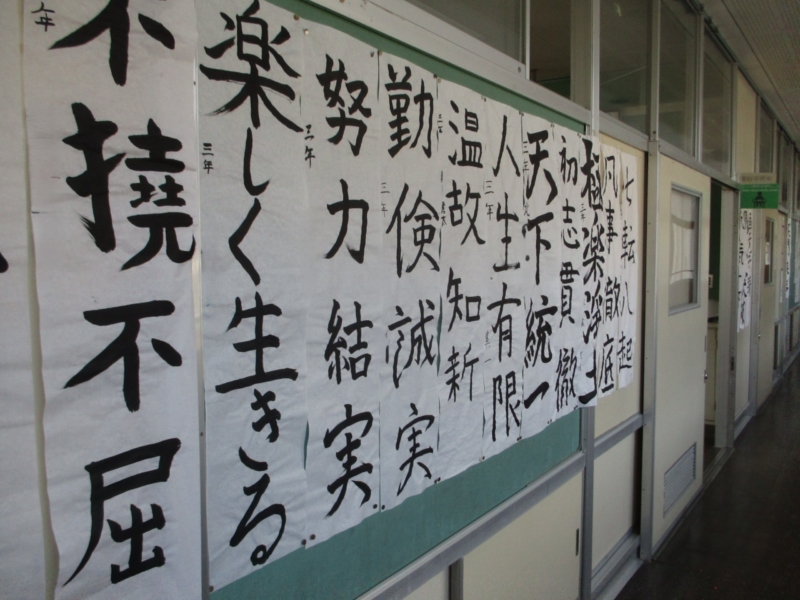 七転八起
凡事徹底
極楽浄土
初志貫徹
天下統一
人生有限
三年
温故知新
三年
勤倹誠実
三年
努力結実
三年
楽しく生きる
三年
不撓不屈
年